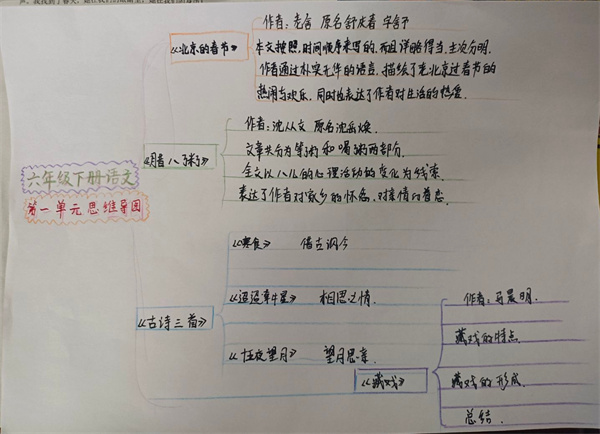 作者:老舍 原名舒庆春 字舍予
《北京的春节》
本文按照,时间顺序来写的,而且详略得当,主次分明.
作者通过朴实无华的语言,描绘了老北京过春节的
热闹与欢乐,同时也表达了作者对生活的热爱.
作者:沈从文 原名沈岳焕.
《腊八粥》
文章共分为等粥和喝粥两部分.
全文以八儿的心理活动的变化为线索.
表达了作者对家乡的怀念,对亲情的眷恋.
六年级下册语文
第一单元思维导图
《寒食》 借古讽今
《迢迢牵牛星》 相思之情.
《古诗三首》
《十五夜望月》 望月思亲.
《藏戏》
作者:马晨明.
藏戏的特点.
藏戏的形成.
总结.